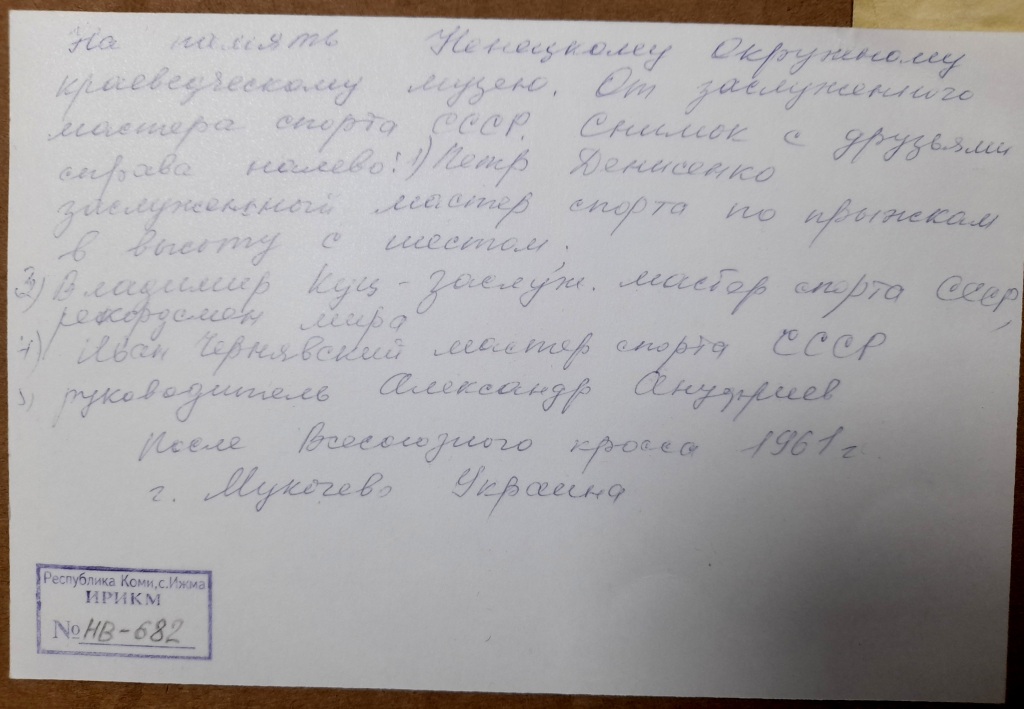 На память Ненецкому Окружному
краеведческому музею. От заслуженного
мастера спорта СССР. Снимок с друзьями
справа налево: 1) Петр Денисенко
заслуженный мастер спорта по прыжкам
в высоту с шестом,
3) Владимир Куц - заслуж. мастер спорта СССР,
рекордсмен мира
4) Иван Чернявский мастер спорта СССР
руководитель Александр Ануфриев
После Всесоюзного кросса 1961 г.
г. Мукачево Украина
Республика Коми, с. Ижма
ИРИКМ
№ НВ-682